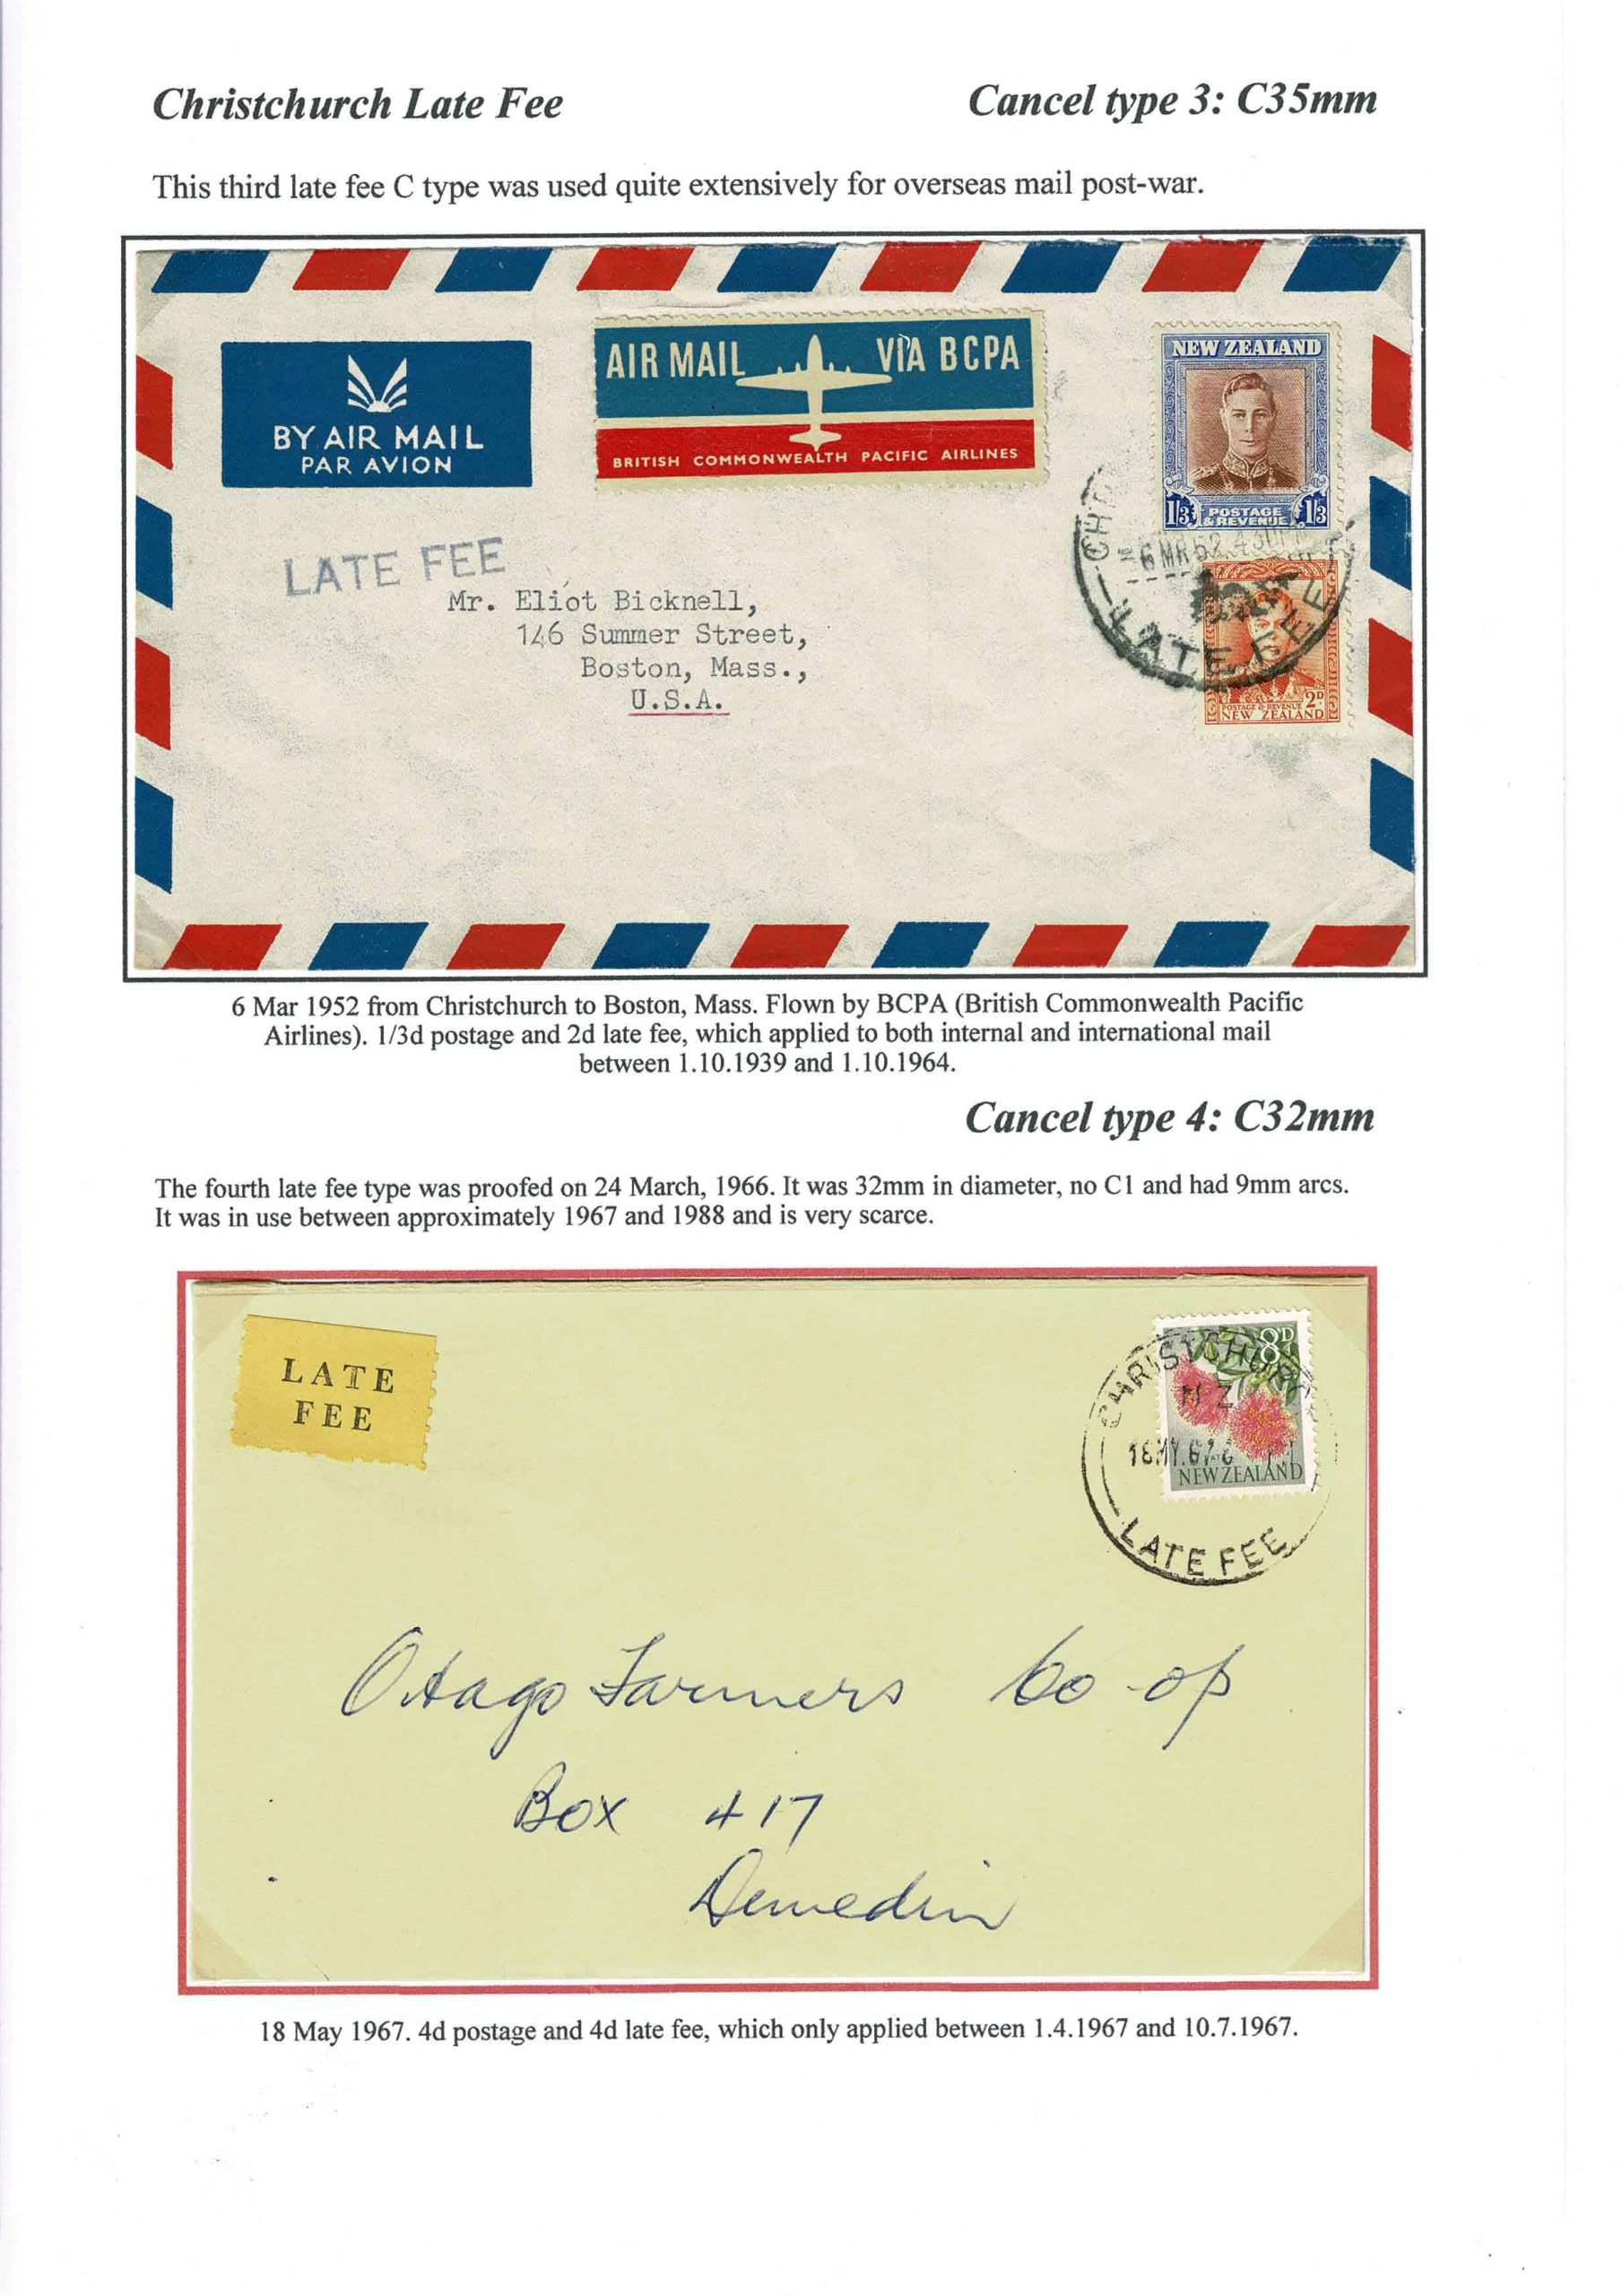 Christchurch Late Fee
Cancel type 3: C35mm
This third late fee C type was used quite extensively for overseas mail post-war.
BY AIR MAIL
PAR AVION
AIR MAIL VIA BCPA
BRITISH COMMONWEALTH PACIFIC AIRLINES
NEW ZEALAND
1/3 POSTAGE & REVENUE 1/3
6 MR 52 4 30 P
LATE FEE
POSTAGE & REVENUE 2D
NEW ZEALAND
LATE FEE
Mr. Eliot Bicknell,
146 Summer Street,
Boston, Mass.,
U.S.A.
6 Mar 1952 from Christchurch to Boston, Mass. Flown by BCPA (British Commonwealth Pacific
Airlines). 1/3d postage and 2d late fee, which applied to both internal and international mail
between 1.10.1939 and 1.10.1964.
Cancel type 4: C32mm
The fourth late fee type was proofed on 24 March, 1966. It was 32mm in diameter, no C1 and had 9mm arcs.
It was in use between approximately 1967 and 1988 and is very scarce.
LATE
FEE
8D
CHRISTCHUR
N Z
18 MY. 67
NEW ZEALAND
LATE FEE
Otago Farmers Co-op
Box 417
Dunedin
18 May 1967. 4d postage and 4d late fee, which only applied between 1.4.1967 and 10.7.1967.